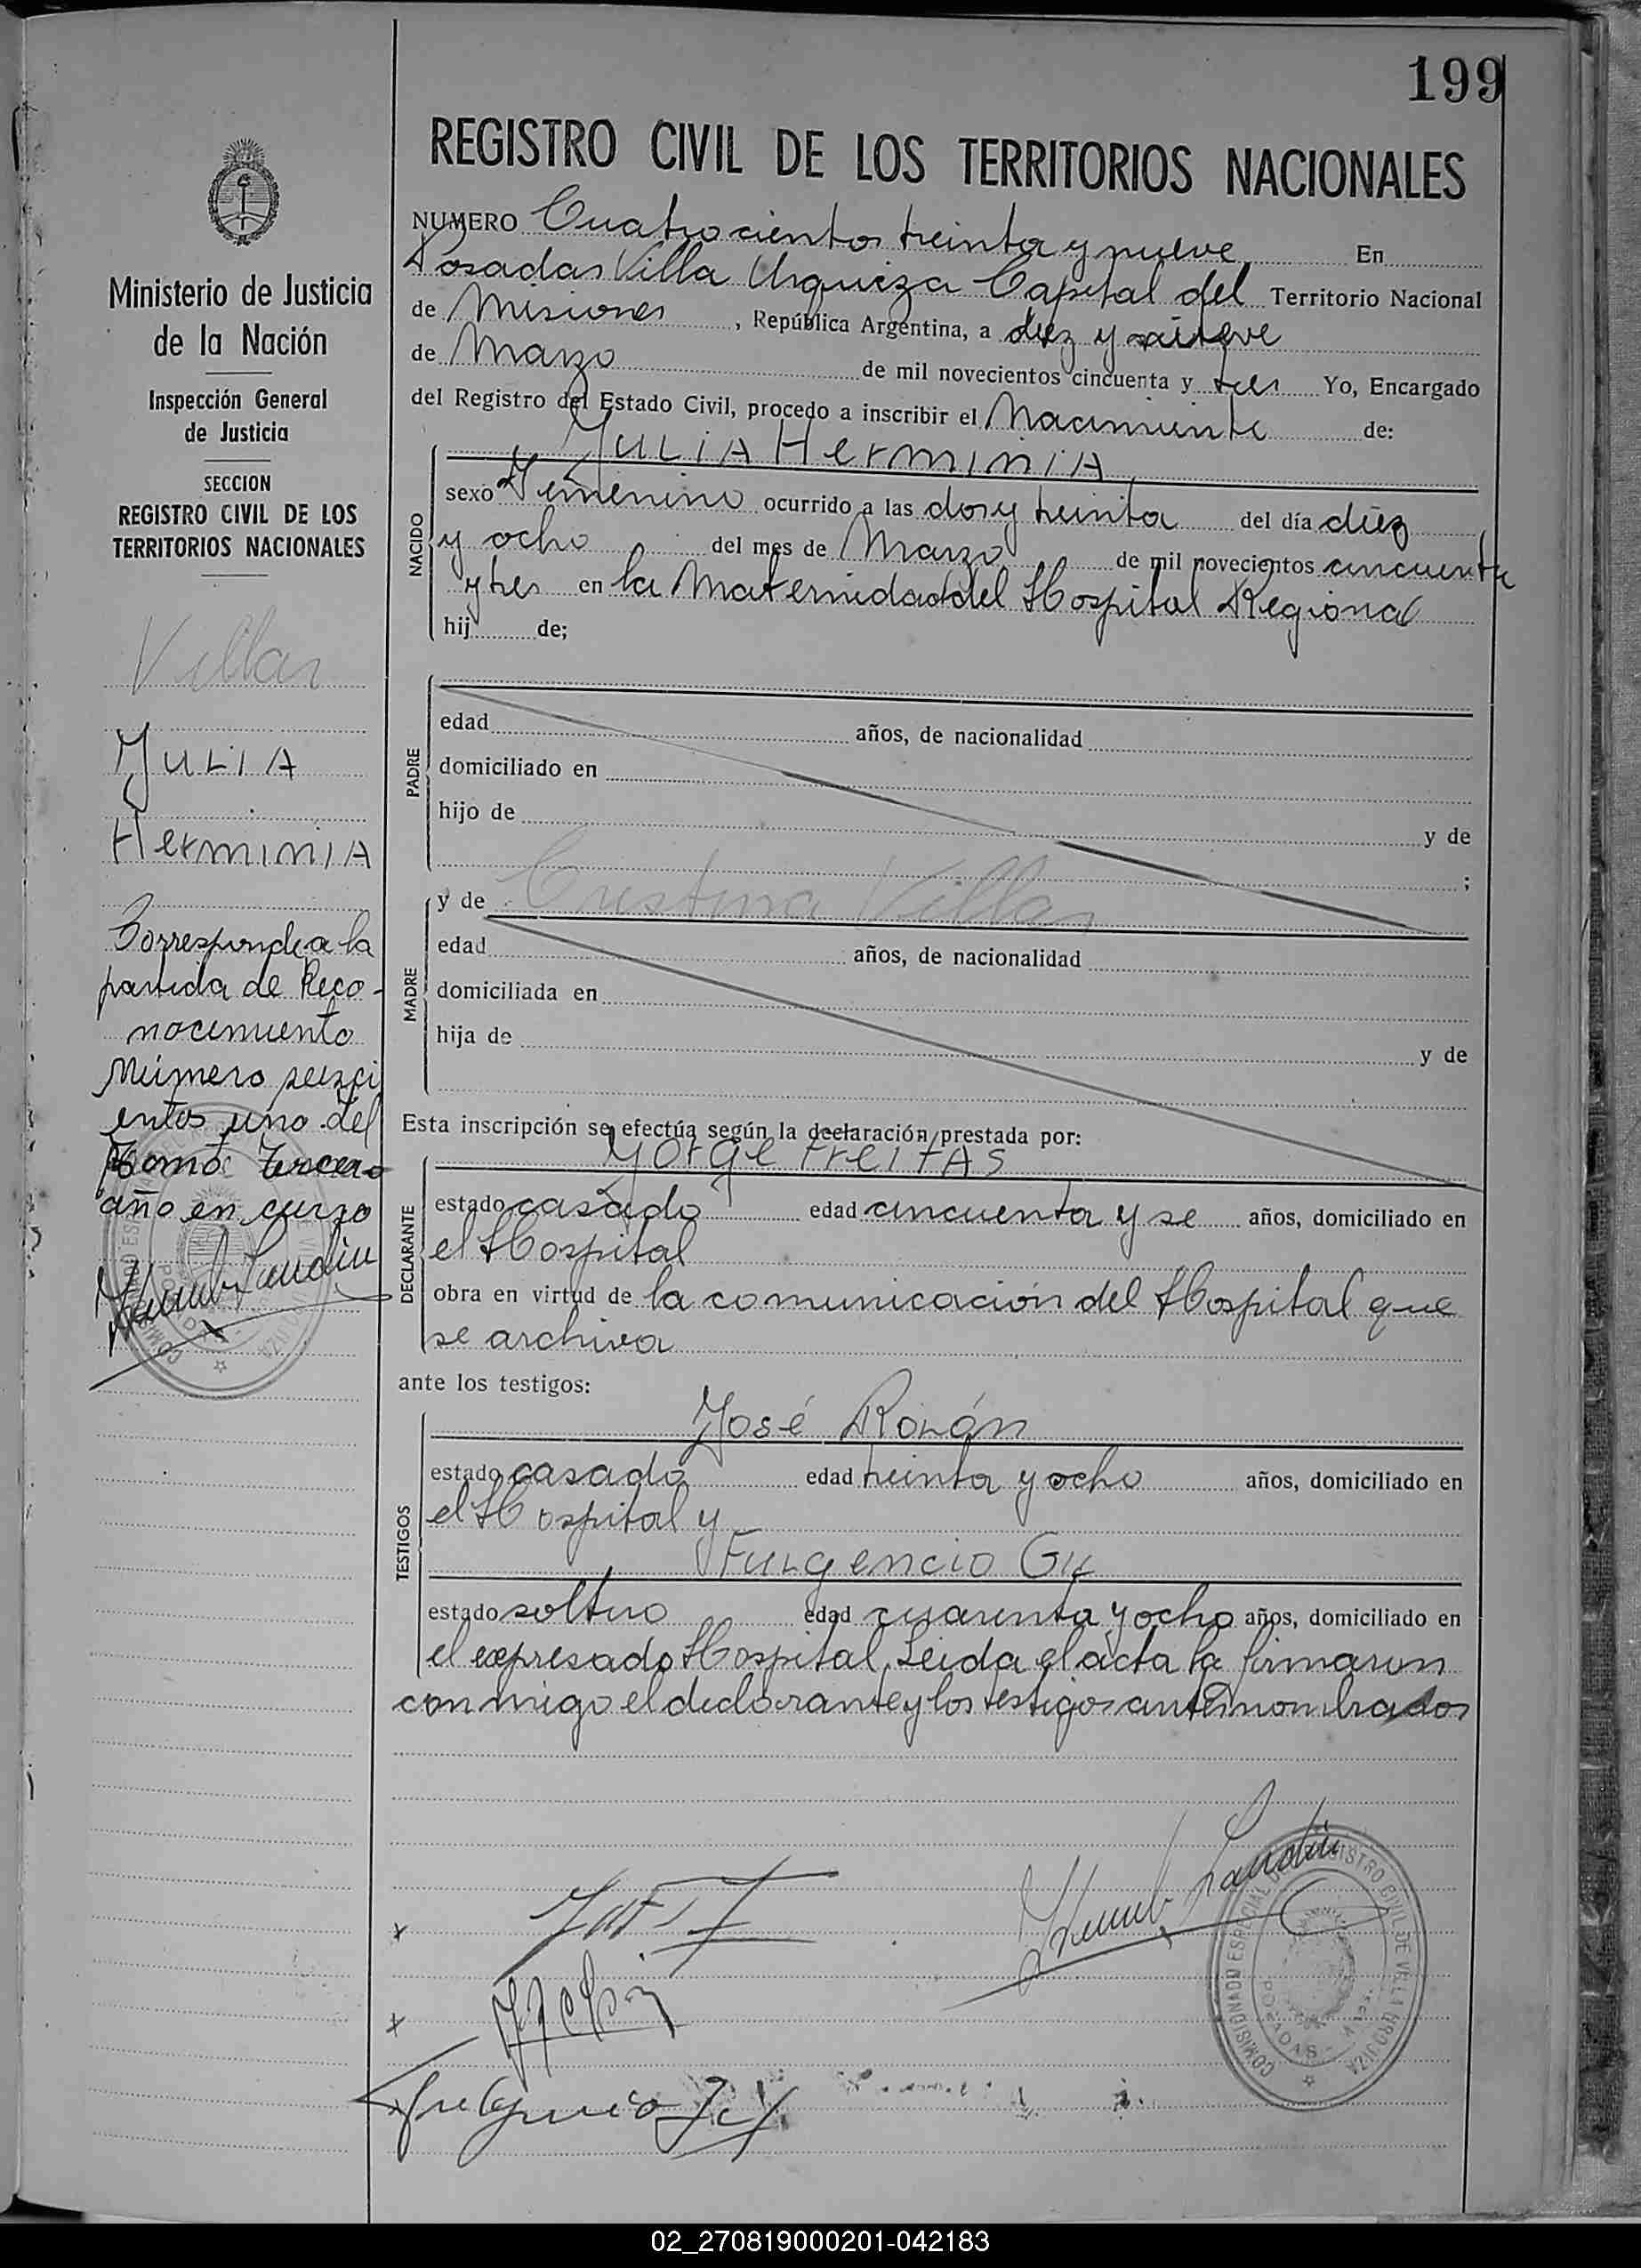 199
REGISTRO CIVIL DE LOS TERRITORIOS NACIONALES
Ministerio de Justicia
de la Nación
Inspección General
de Justicia
SECCION
REGISTRO CIVIL DE LOS
TERRITORIOS NACIONALES
Villar
JULIA
HerminiA
Corresponde a la
partida de Reco-
nocimiento
Número seisci
entos uno del
Tomo tercero
año en curso
NUMERO Cuatrocientos treinta y nueve En
Posadas Villa Urquiza Capital del Territorio Nacional
de Misiones, República Argentina, a diez y nueve
de Marzo de mil novecientos cincuenta y tres Yo, Encargado
del Registro del Estado Civil, procedo a inscribir el Nacimiento de:
JULiA HerminiA
NACIDO
sexo Femenino ocurrido a las dos y treinta del día diez
y ocho del mes de Marzo de mil novecientos cincuenta
y tres en la Maternidad del Hospital Regional
hij de;
PADRE
edad años, de nacionalidad
domiciliado en
hijo de y de
;
MADRE
y de Cristina Villar
edad años, de nacionalidad
domiciliada en
hija de y de
Esta inscripción se efectúa según la declaración prestada por:
Jorge FreitAs
DECLARANTE
estado casado edad cincuenta y se años, domiciliado en
el Hospital
obra en virtud de la comunicación del Hospital que
se archiva
ante los testigos:
José Rolón
TESTIGOS
estado casado edad treinta y ocho años, domiciliado en
el Hospital y
Fulgencio
estado soltero edad cuarenta y ocho años, domiciliado en
el expresado Hospital, Leida el acta la firmaron
conmigo el declarante y los testigos antes nombrados
COMISIONADO ESPECIAL DEL REGISTRO CIVIL DE VILLA URQUIZA
POSADAS
02_270819000201-042183